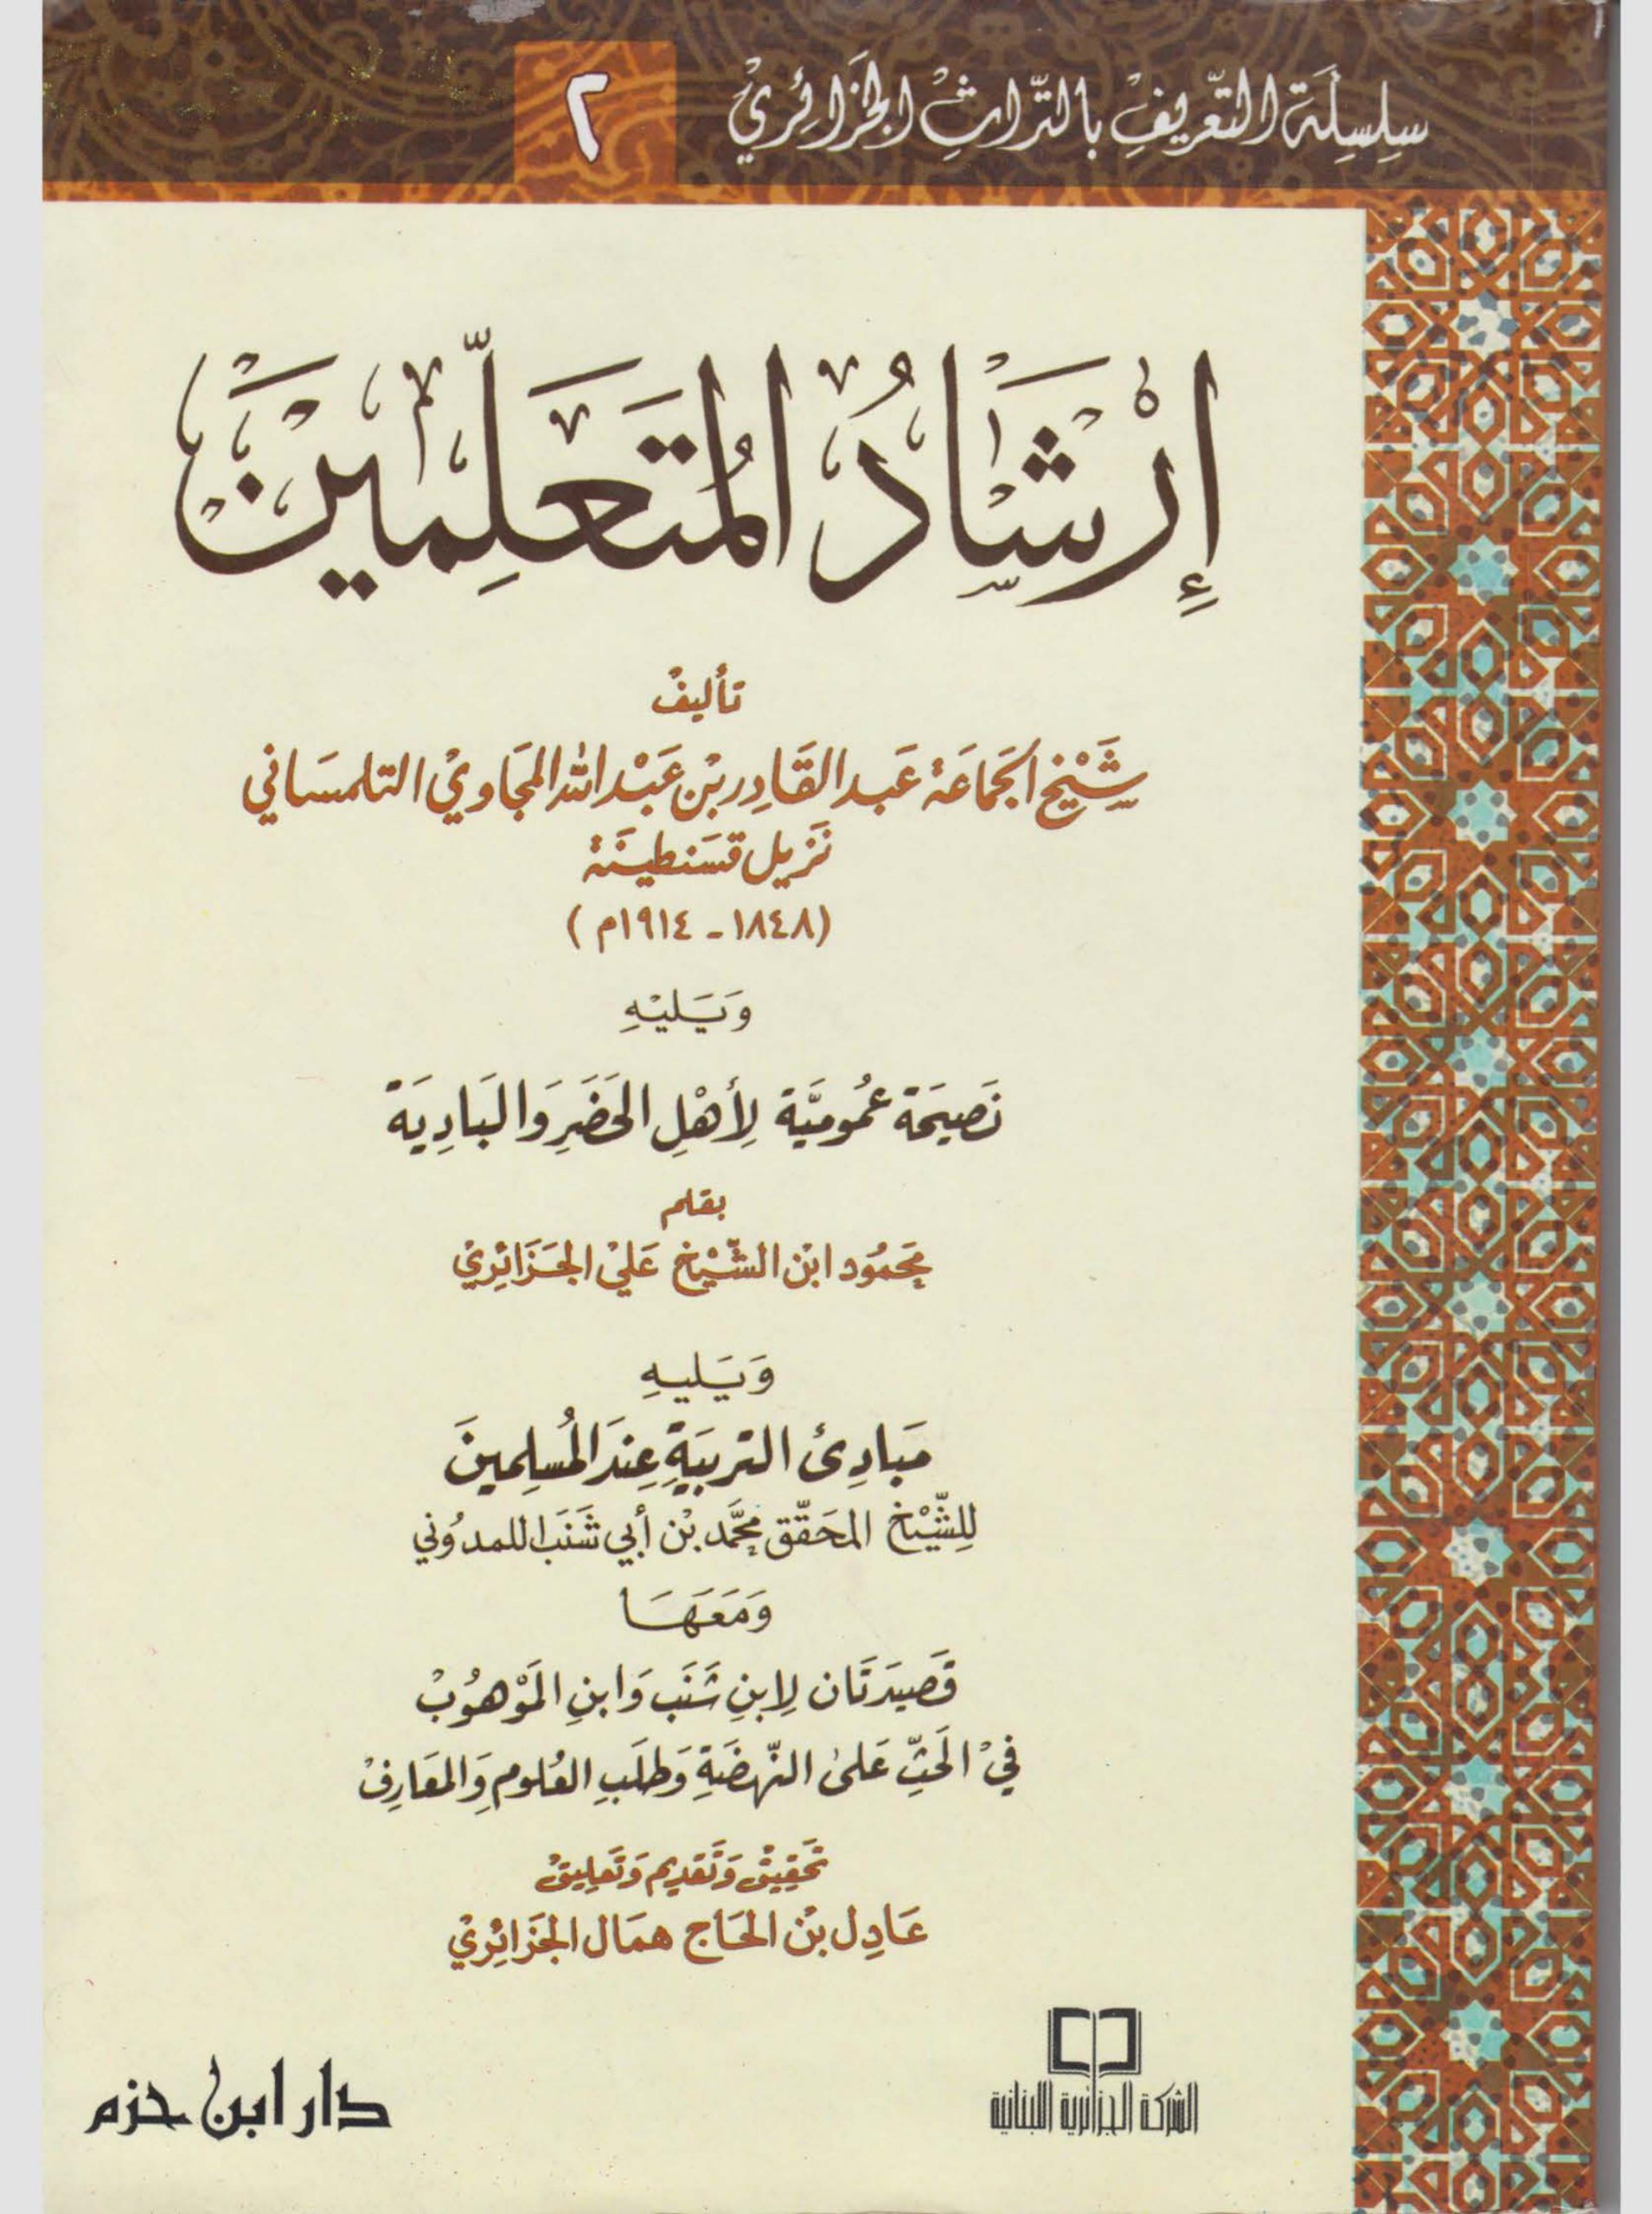 سِلسِلَة التَّعريفِ بالتّراثِ الجَزائِريْ
٢
إِرْشَادُ المُتَعَلِّمِينَ
تأليفْ
شَيْخ الجَمَاعَة عَبد القَادِر بْن عَبْد الله المجَاويْ التلمسَاني
نَزيل قسَنطينَة
(١٨٤٨ - ١٩١٤م)
وَيَليْهِ
نَصيحَة عُموميَّة لِأَهْلِ الحَضَرِ وَالبَادِيَة
بقلم
مَحمُود ابْن الشّيْخ عَليْ الجَزَائِريْ
وَيَليهِ
مَبادِئ التربيَةِ عِندَ المُسلِمينَ
لِلشّيْخ المحَقّق محَمَّد بْن أبي شَنَب المدُوني
وَمَعَهَا
قَصيدَتَان لِابنِ شَنَب وَابنِ المَوْهُوبْ
فيْ الحَثِّ عَلىٰ النَّهضَةِ وَطلَبِ العُلومِ وَالمعَارِفْ
تَحقِيقْ وَتَقديم وَتَعليقْ
عَادِل بْن الحَاج همَال الجَزَائِريْ
الشركة الجزائرية اللبنانية
دار ابن حزم